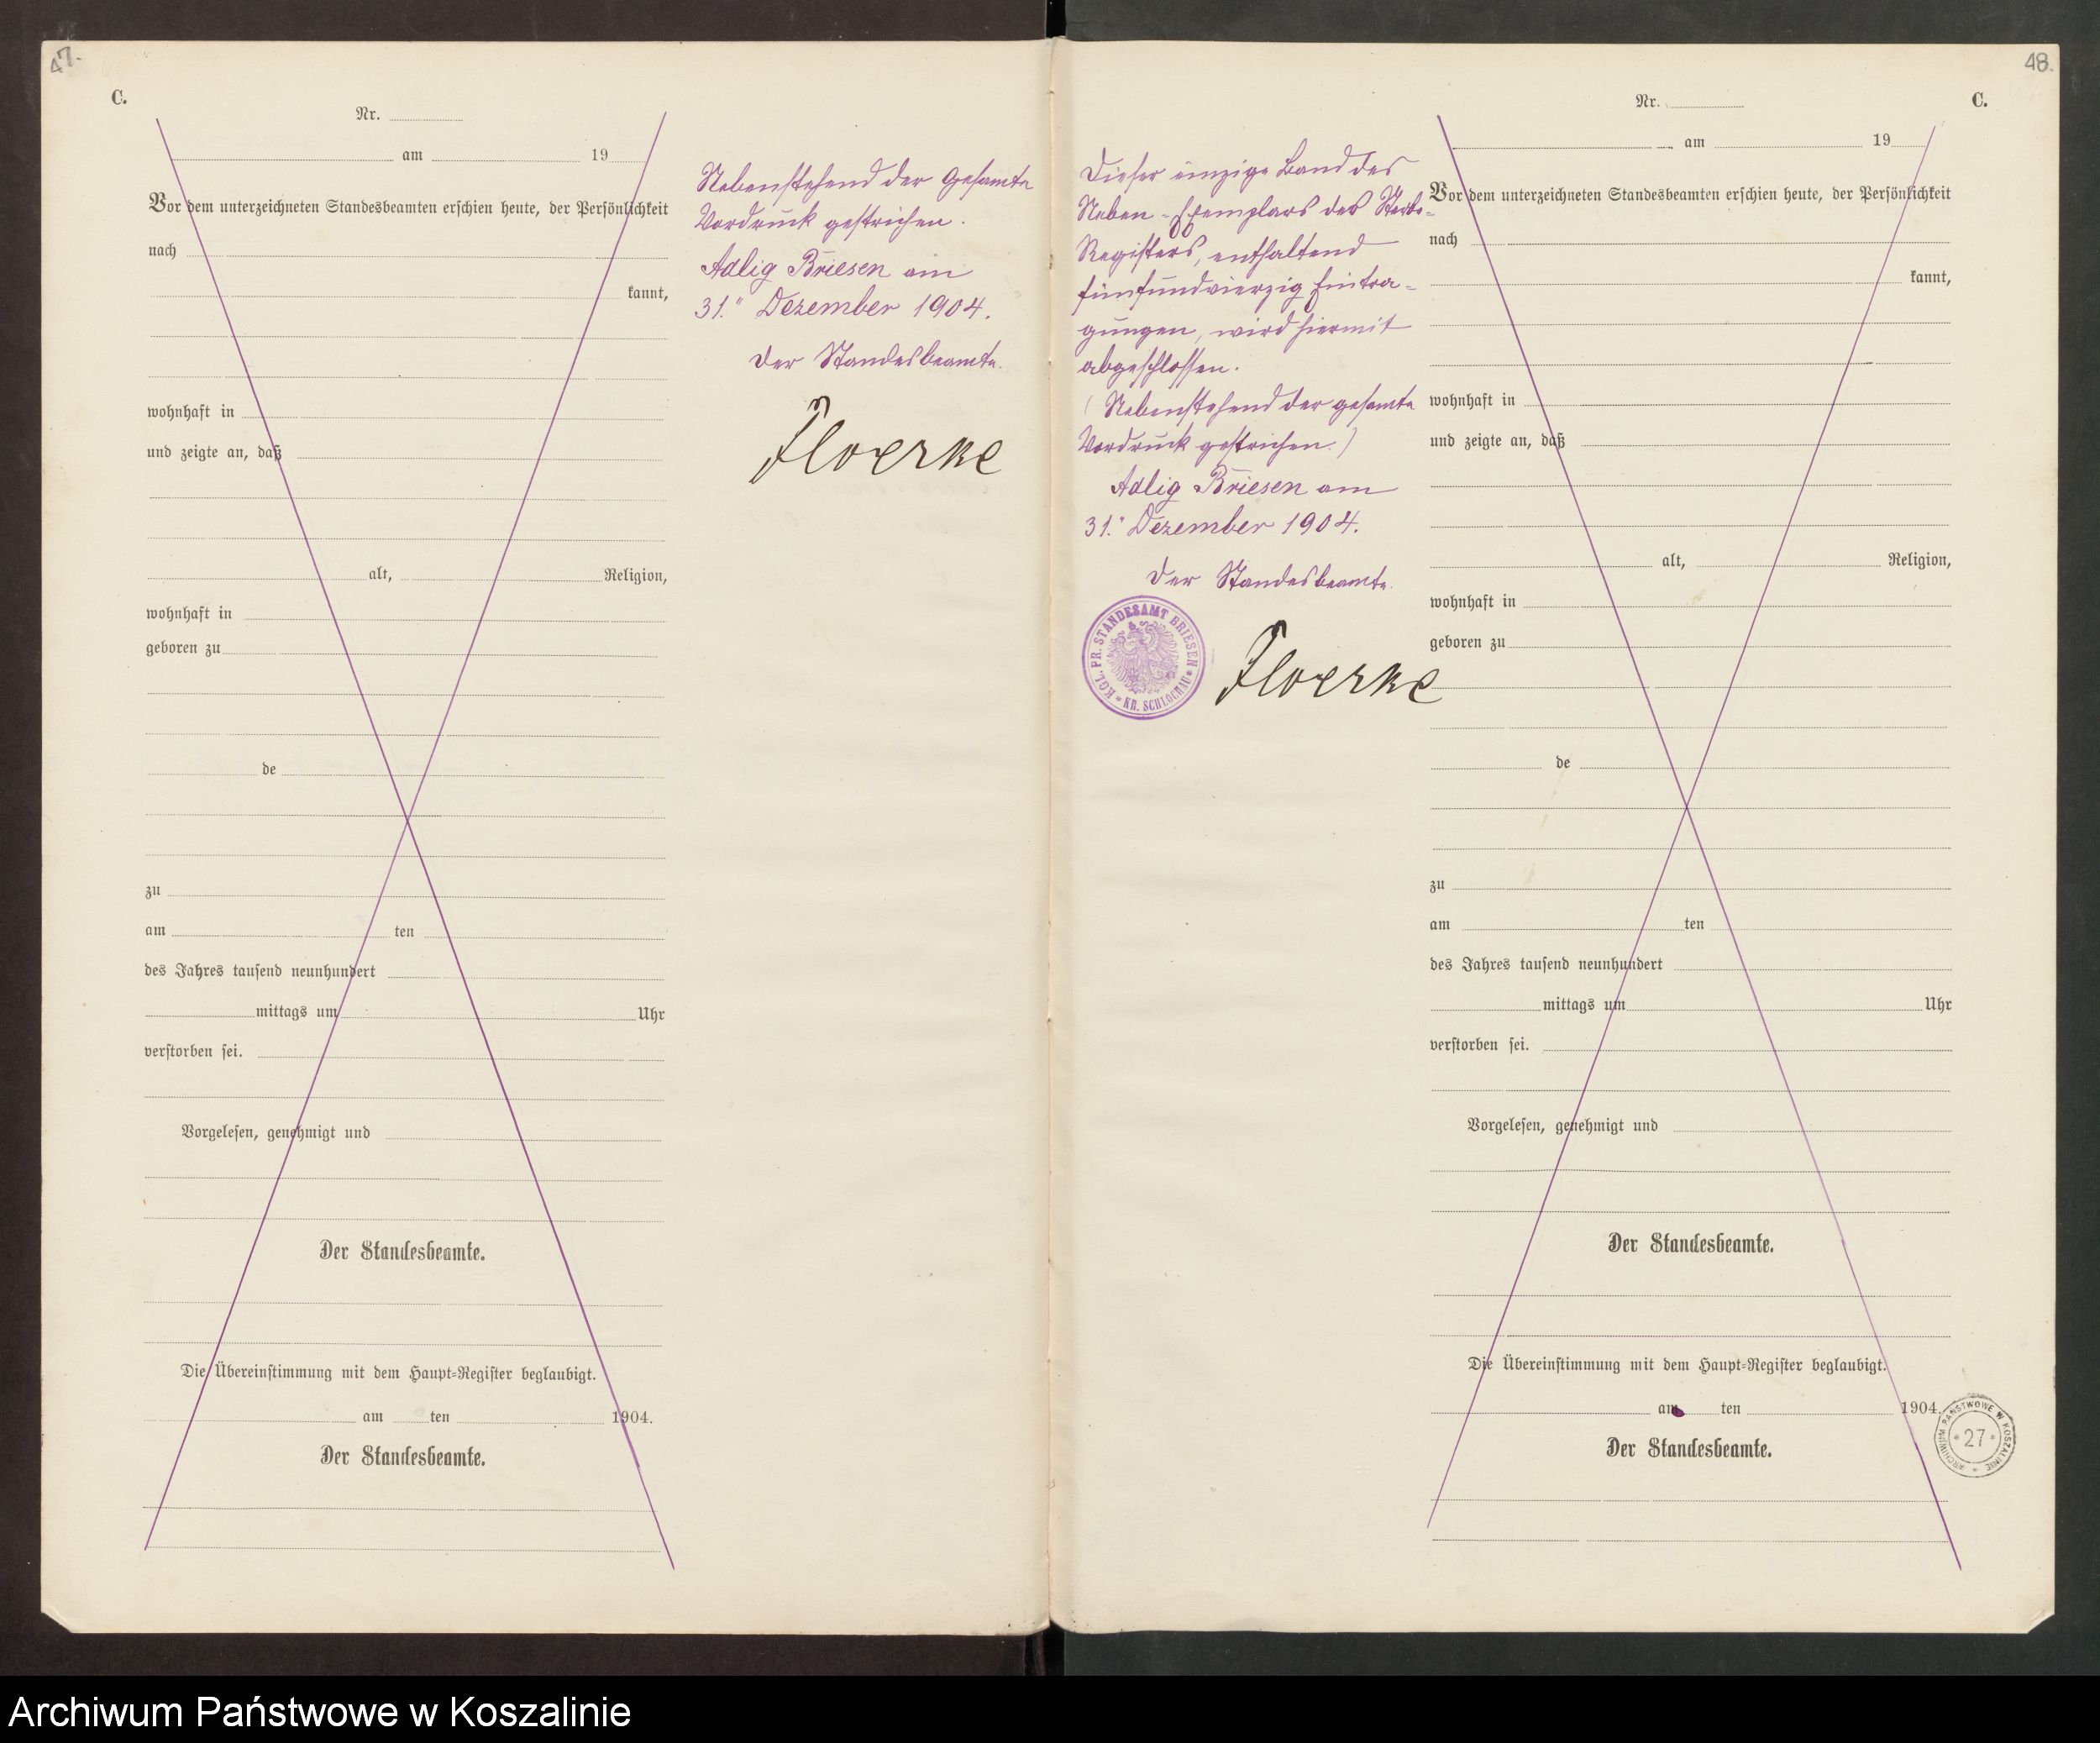 47.
C.
Nr.
am 19
Vor dem unterzeichneten Standesbeamten erschien heute, der Persönlichkeit
nach
kannt,
wohnhaft in
und zeigte an, daß
alt, Religion,
wohnhaft in
geboren zu
de
zu
am ten
des Jahres tausend neunhundert
mittags um Uhr
verstorben sei.
Vorgelesen, genehmigt und
Der Standesbeamte.
Die Übereinstimmung mit dem Haupt-Register beglaubigt.
am ten 1904.
Der Standesbeamte.
Nebenstehend der gesamte
Vordruck gestrichen.
Adlig Briesen am
31. Dezember 1904.
Der Standesbeamte.
Floerke
Dieser einzige Band des
Neben-Exemplars des Sterbe-
Registers, enthaltend
fünfundvierzig Eintra-
gungen, wird hiermit
abgeschlossen.
(Nebenstehend der gesamte
Vordruck gestrichen.)
Adlig Briesen am
31. Dezember 1904.
Der Standesbeamte.
KGL. PR. STANDESAMT BRIESEN
* KR. SCHLOCHAU *
Floerke
48.
C.
Nr.
am 19
Vor dem unterzeichneten Standesbeamten erschien heute, der Persönlichkeit
nach
kannt,
wohnhaft in
und zeigte an, daß
alt, Religion,
wohnhaft in
geboren zu
de
zu
am ten
des Jahres tausend neunhundert
mittags um Uhr
verstorben sei.
Vorgelesen, genehmigt und
Der Standesbeamte.
Die Übereinstimmung mit dem Haupt-Register beglaubigt.
am ten 1904.
Der Standesbeamte.
ARCHIWUM PAŃSTWOWE W KOSZALINIE
* 27 *
Archiwum Państwowe w Koszalinie